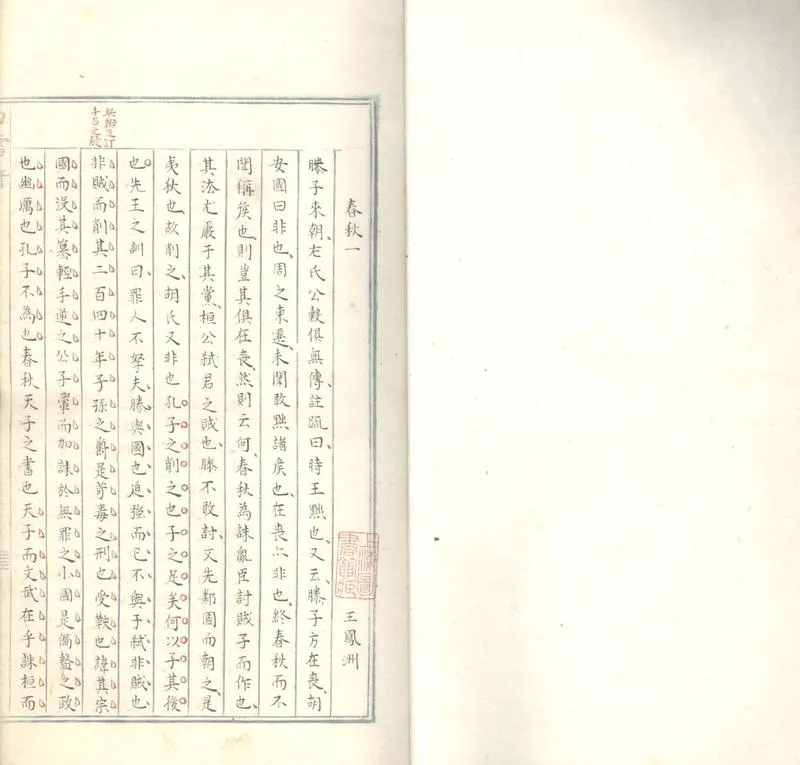 春秋一
王鳳洲
滕子來朝左氏公穀俱無傳註疏曰時王黜也又云滕子方在喪胡
安國曰非也周之東遷未聞敢黜諸矦也在喪亦非也終春秋而不
聞稱矦也則豈其俱在喪然則云何春秋為誅亂臣討賊子而作也
其法尤嚴于其黨桓公弑君之賊也滕不敢討又先鄰國而朝之是
夷狄也故削之胡氏又非也孔子之削之也子之足矣何以子其後
也先王之訓曰罪人不孥夫滕與國也迫强而已不與于弑非賊也
非賊而削其二百四十年子孫之爵是苛毒之刑也受鞅也諱其宗
國而沒其篡輕手逆之公子翬而加誅於無罪之小國是偏盭之政
也幽厲也孔子不為也春秋天子之書也天子而文武在乎誅桓而
上海圖
書館藏